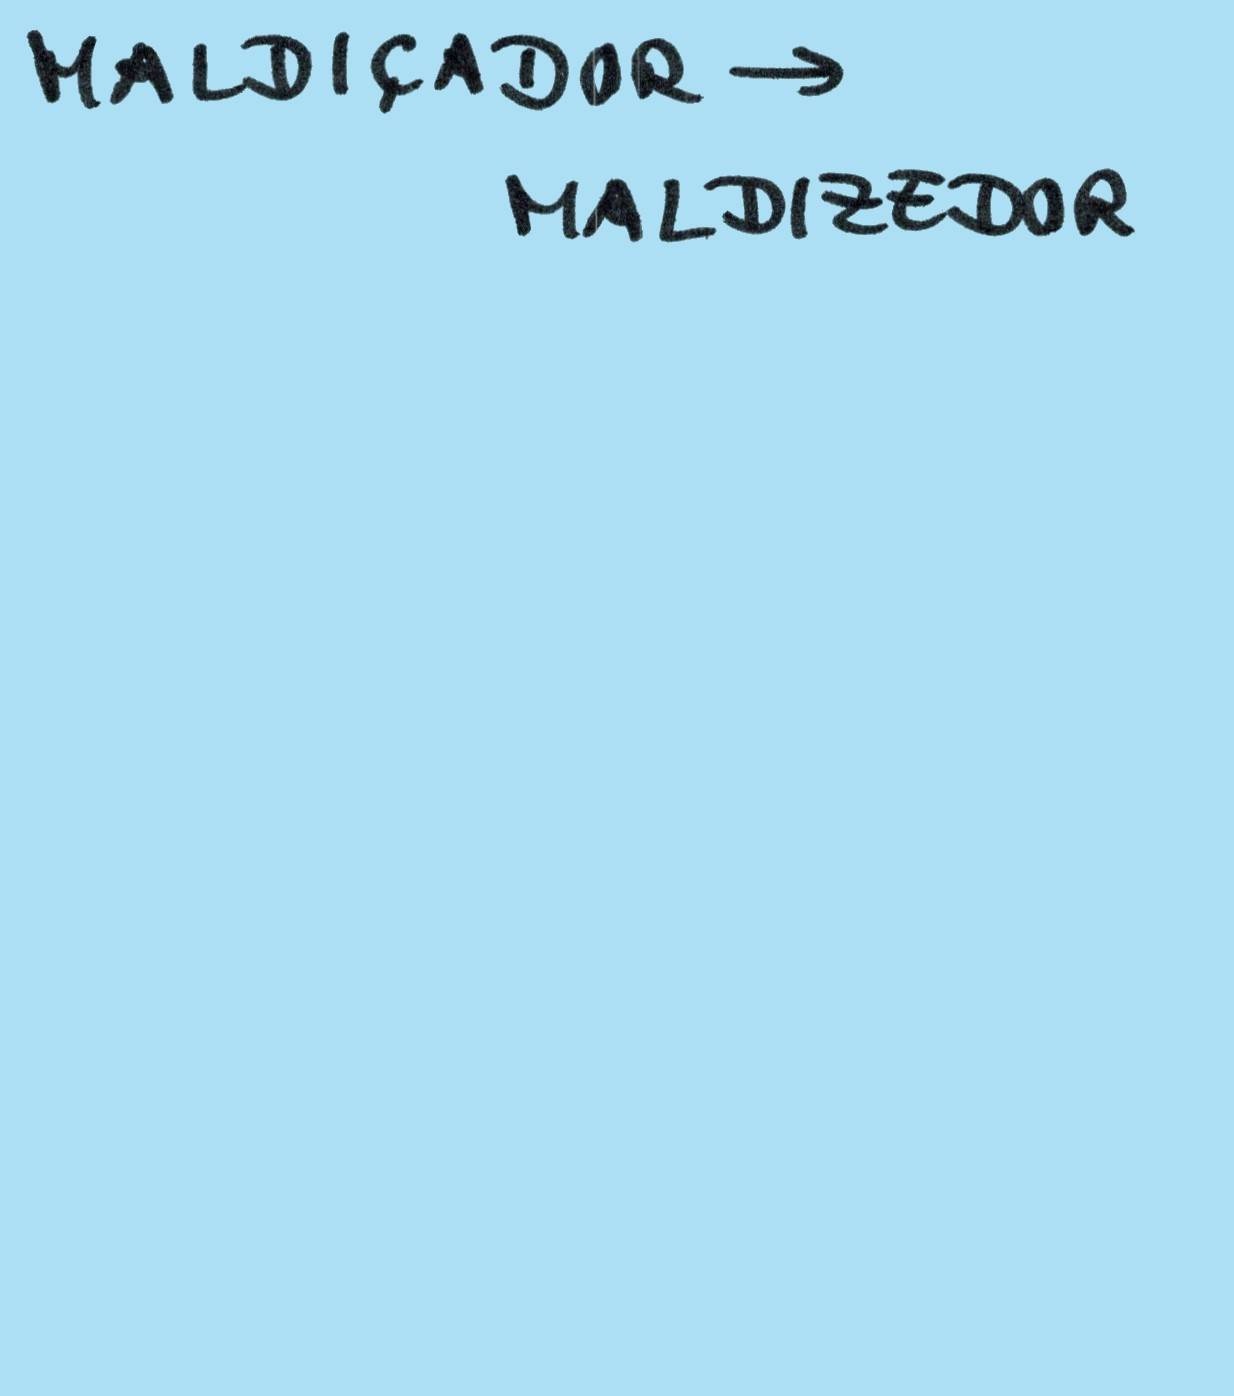 MALDIÇADOR →
MALDIZEDOR